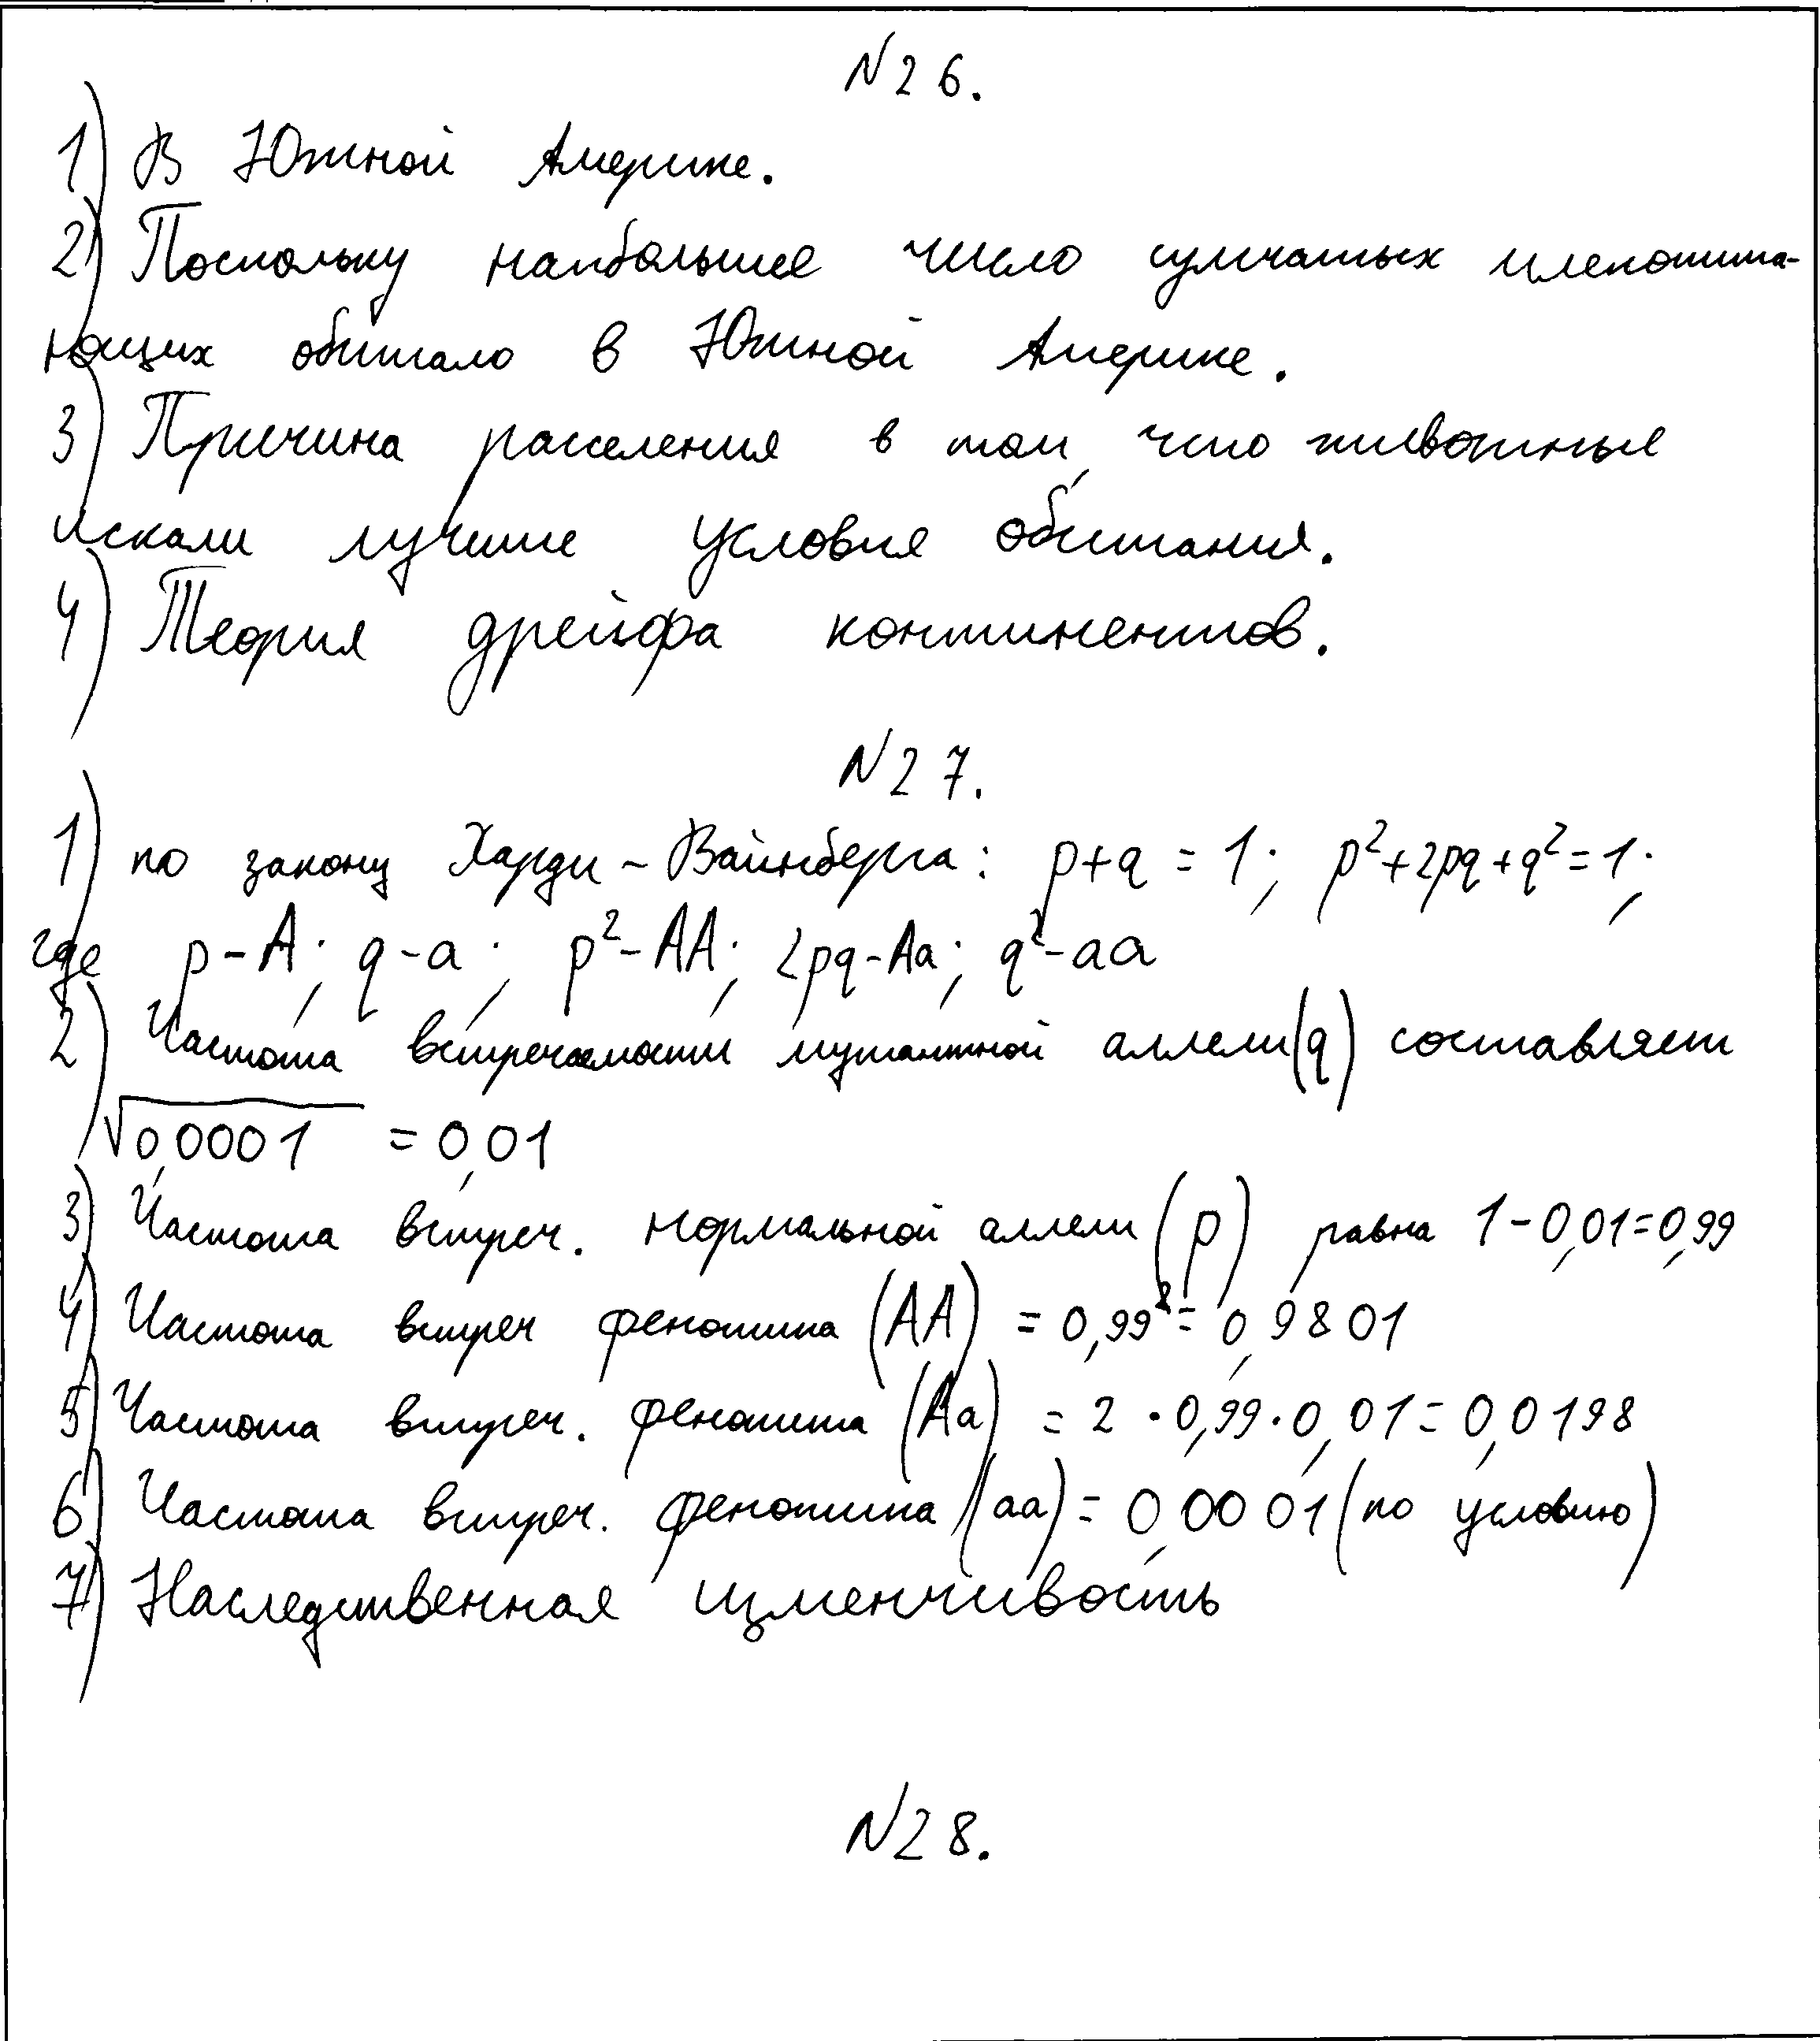 N26.
1) В Южной Америке.
2) Поскольку наибольшее число сумчатых млекопита-
ющих обитало в Южной Америке.
3) Причина расселения в том, что животные
искали лучшие условия обитания.
4) Теория дрейфа континентов.
N27.
1) по закону Харди-Вайнберга: p+q=1; p²+2pq+q²=1;
где p-A; q-a; p²-AA; 2pq-Aa; q²-aa
2) Частота встречаемости мутантной аллели(q) составляет
√0,0001 = 0,01
3) Частота встреч. нормальной аллели (p) равна 1-0,01=0,99
4) Частота встреч фенотипа (AA) = 0,99²= 0,9801
5) Частота встреч. фенотипа (Aa) = 2·0,99·0,01=0,0198
6) Частота встреч. фенотипа (aa)=0,0001(по условию)
7) Наследственная изменчивость
N28.